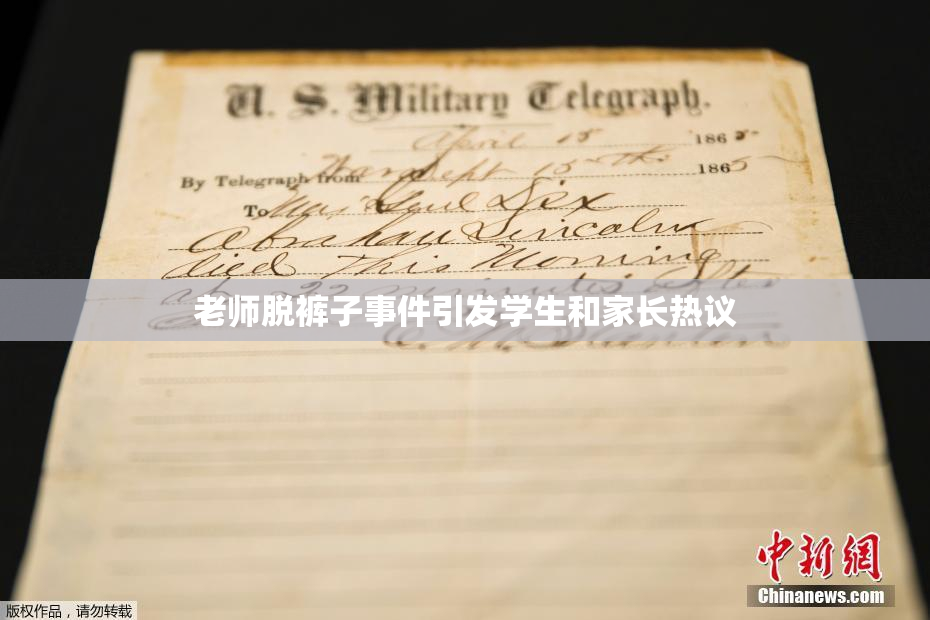 U. S. Military Telegraph.
April 15 1865-
By Telegraph from War Dept 15th 1865
To Maj Genl Dix
Abraham Lincoln
died This Morning
at 22 minutes after
老师脱裤子事件引发学生和家长热议
中新网
Chinanews.com
版权作品，请勿转载